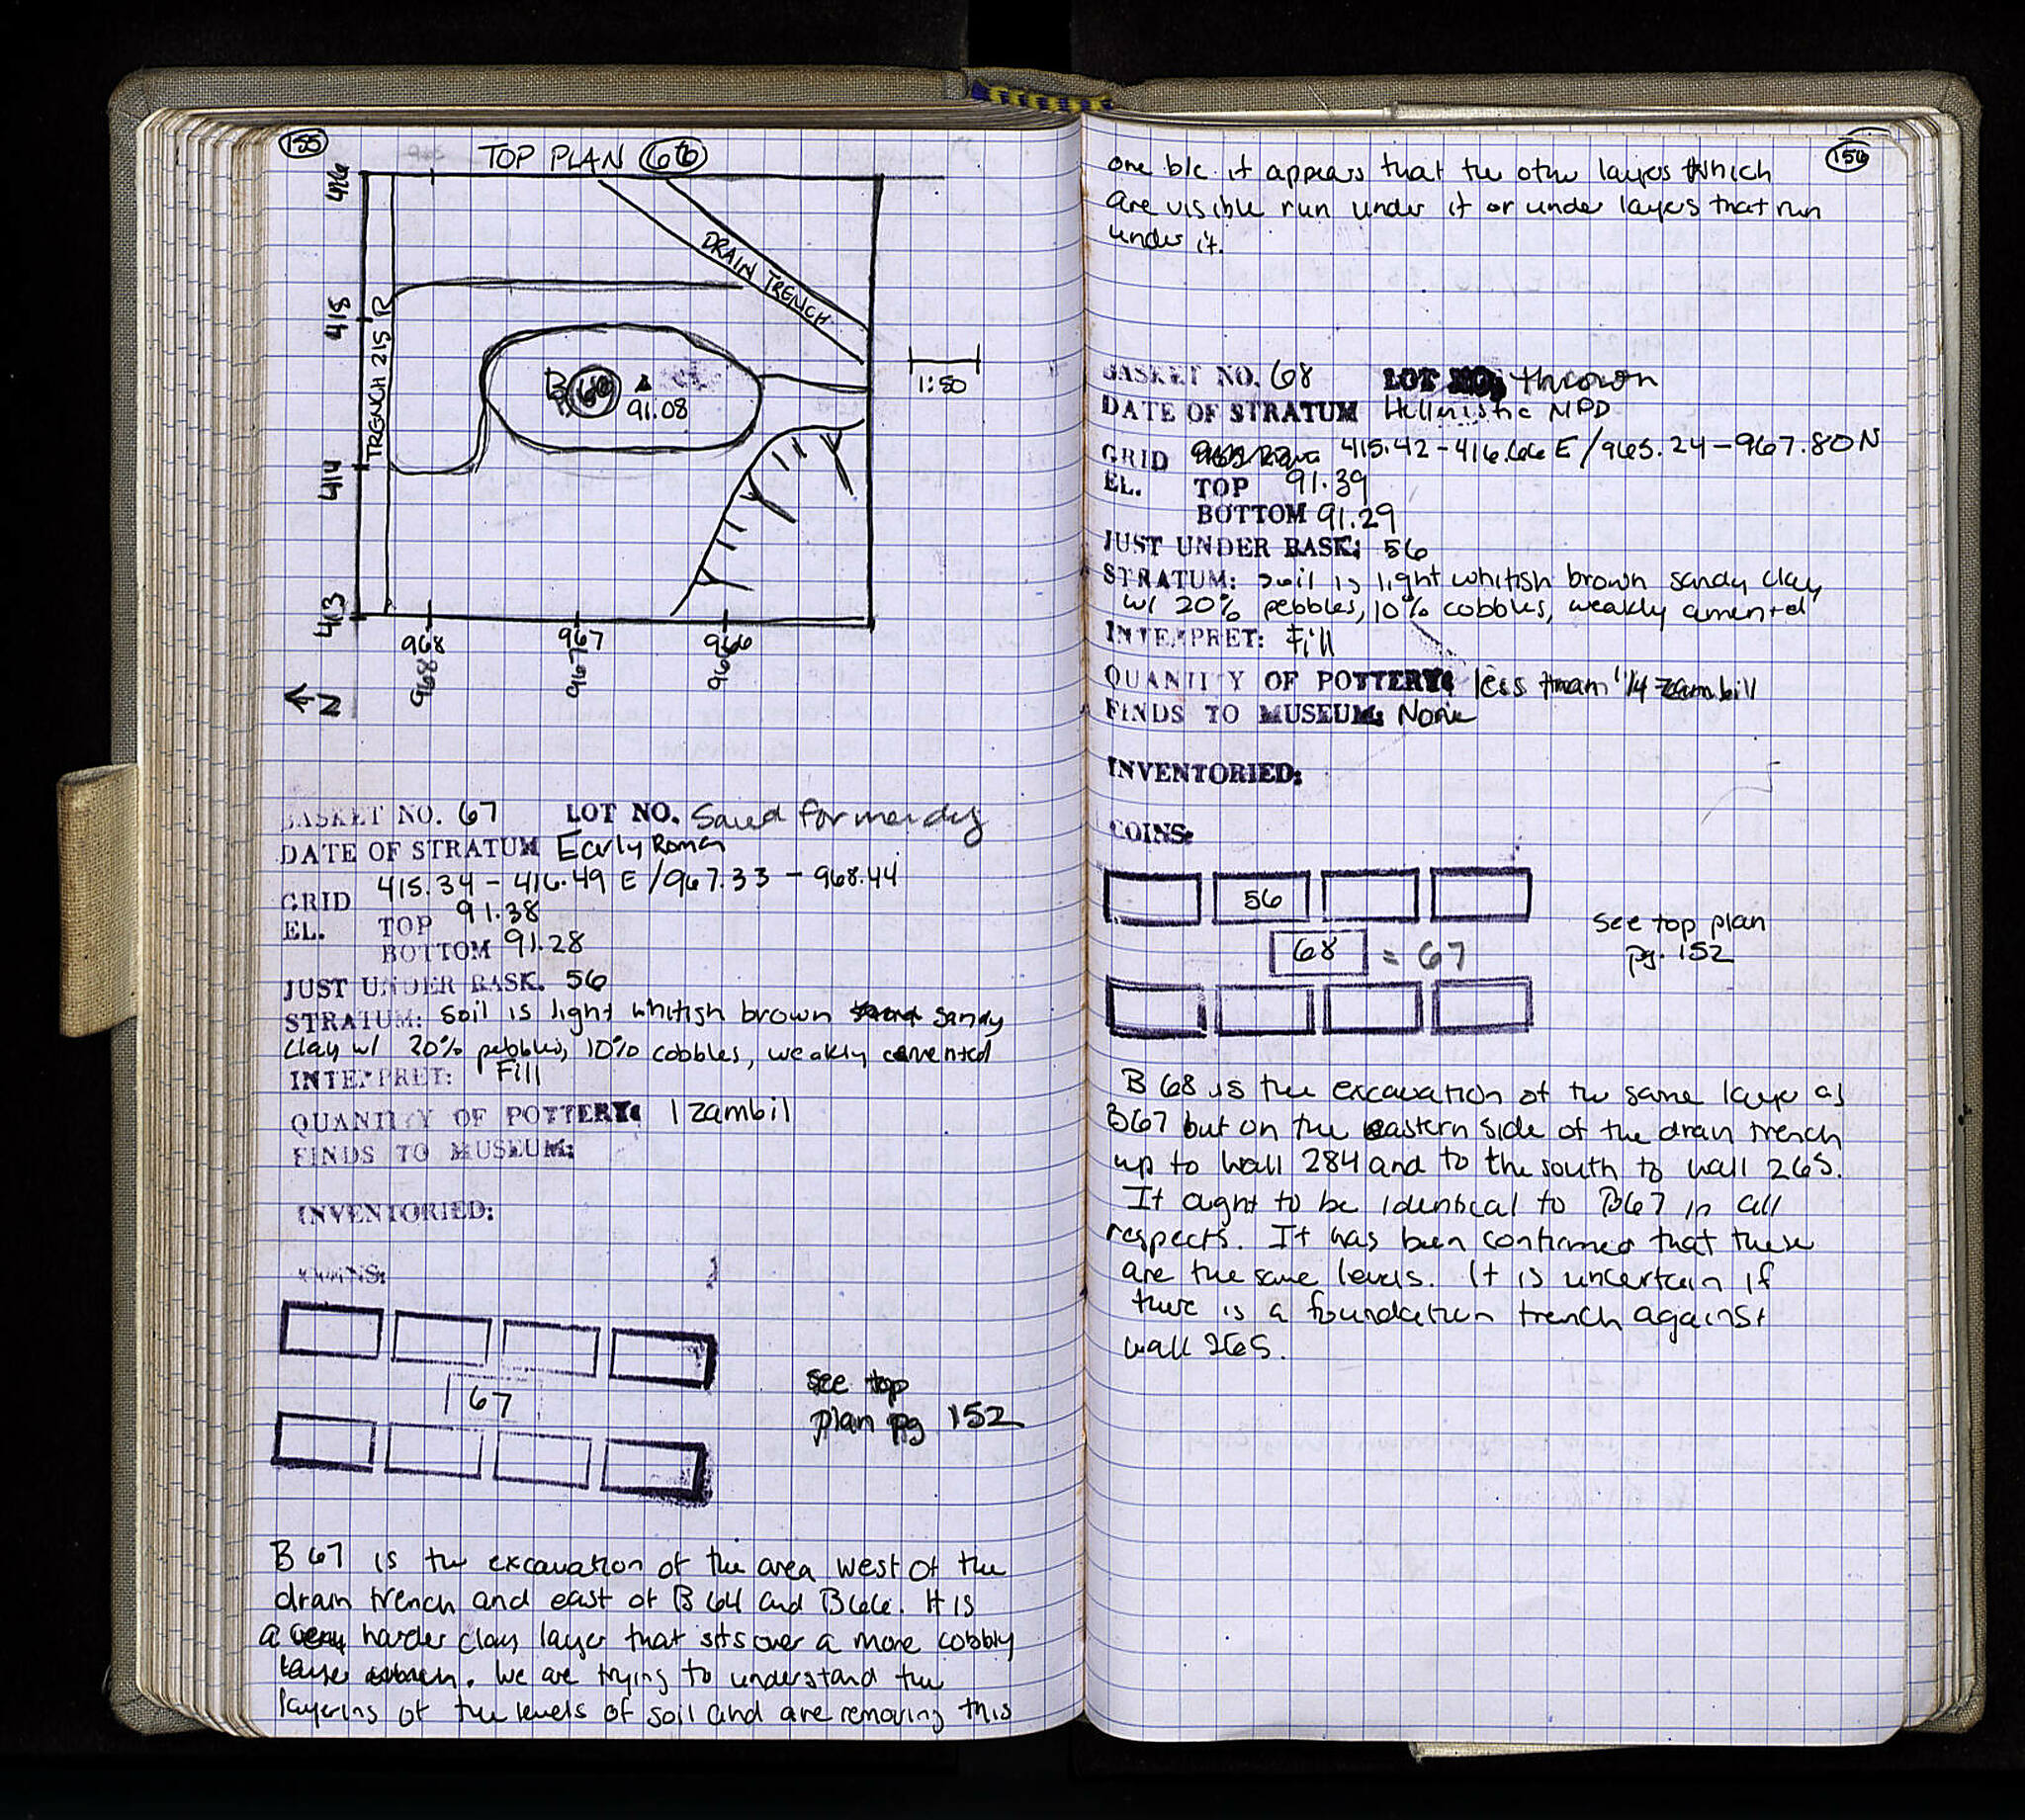 155
TOP PLAN 66
416
415
414
413
TRENCH 215 R
DRAIN TRENCH
B 66
91.08
1:50
968 967 966
968 967 966
N
BASKET NO. 67 LOT NO. Saved for mendg
DATE OF STRATUM Early Roman
GRID 415.34 - 416.49 E / 967.33 - 968.44
EL. TOP 91.38
BOTTOM 91.28
JUST UNDER BASK. 56
STRATUM: Soil is light whitish brown sandy
clay w/ 20% pebbles, 10% cobbles, weakly cemented
INTERPRET: Fill
QUANTITY OF POTTERY: 1 zambil
FINDS TO MUSEUM:
INVENTORIED:
COINS:
67
see top
plan pg 152
B 67 is the excavation of the area west of the
drain trench and east of B 64 and B66. It is
a harder clay layer that sits over a more cobbly
layer. We are trying to understand the
layering of the levels of soil and are removing this
156
one b/c it appears that the other layers which
are visible run under it or under layers that run
under it.
BASKET NO. 68 LOT NO. thrown
DATE OF STRATUM Hellenistic MPD
GRID 415.42 - 416.66 E / 965.24 - 967.80 N
EL. TOP 91.39
BOTTOM 91.29
JUST UNDER BASK: 56
STRATUM: Soil is light whitish brown sandy clay
w/ 20% pebbles, 10% cobbles, weakly cemented
INTERPRET: Fill
QUANTITY OF POTTERY: less than 1/4 zambill
FINDS TO MUSEUM: None
INVENTORIED:
COINS:
56
68 = 67
see top plan
pg. 152
B 68 is the excavation of the same layer as
B67 but on the eastern side of the drain trench
up to wall 284 and to the south to wall 265.
It aught to be identical to B67 in all
respects. It has been confirmed that these
are the same levels. It is uncertain if
there is a foundation trench against
wall 265.